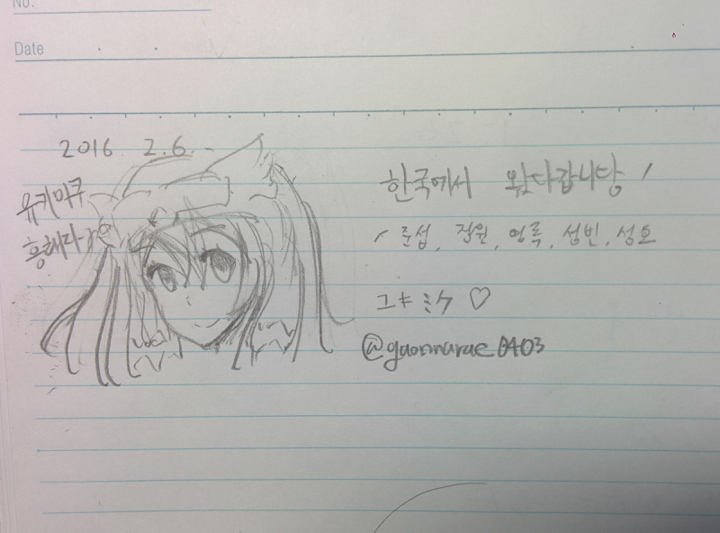 No.
Date
2016 2.6.
유키미쿠
흥해라
한국에서 왔다갑니당
준섭, 진원, 영록, 성빈, 성호
ユキミク ♡
@gaonmarue0403